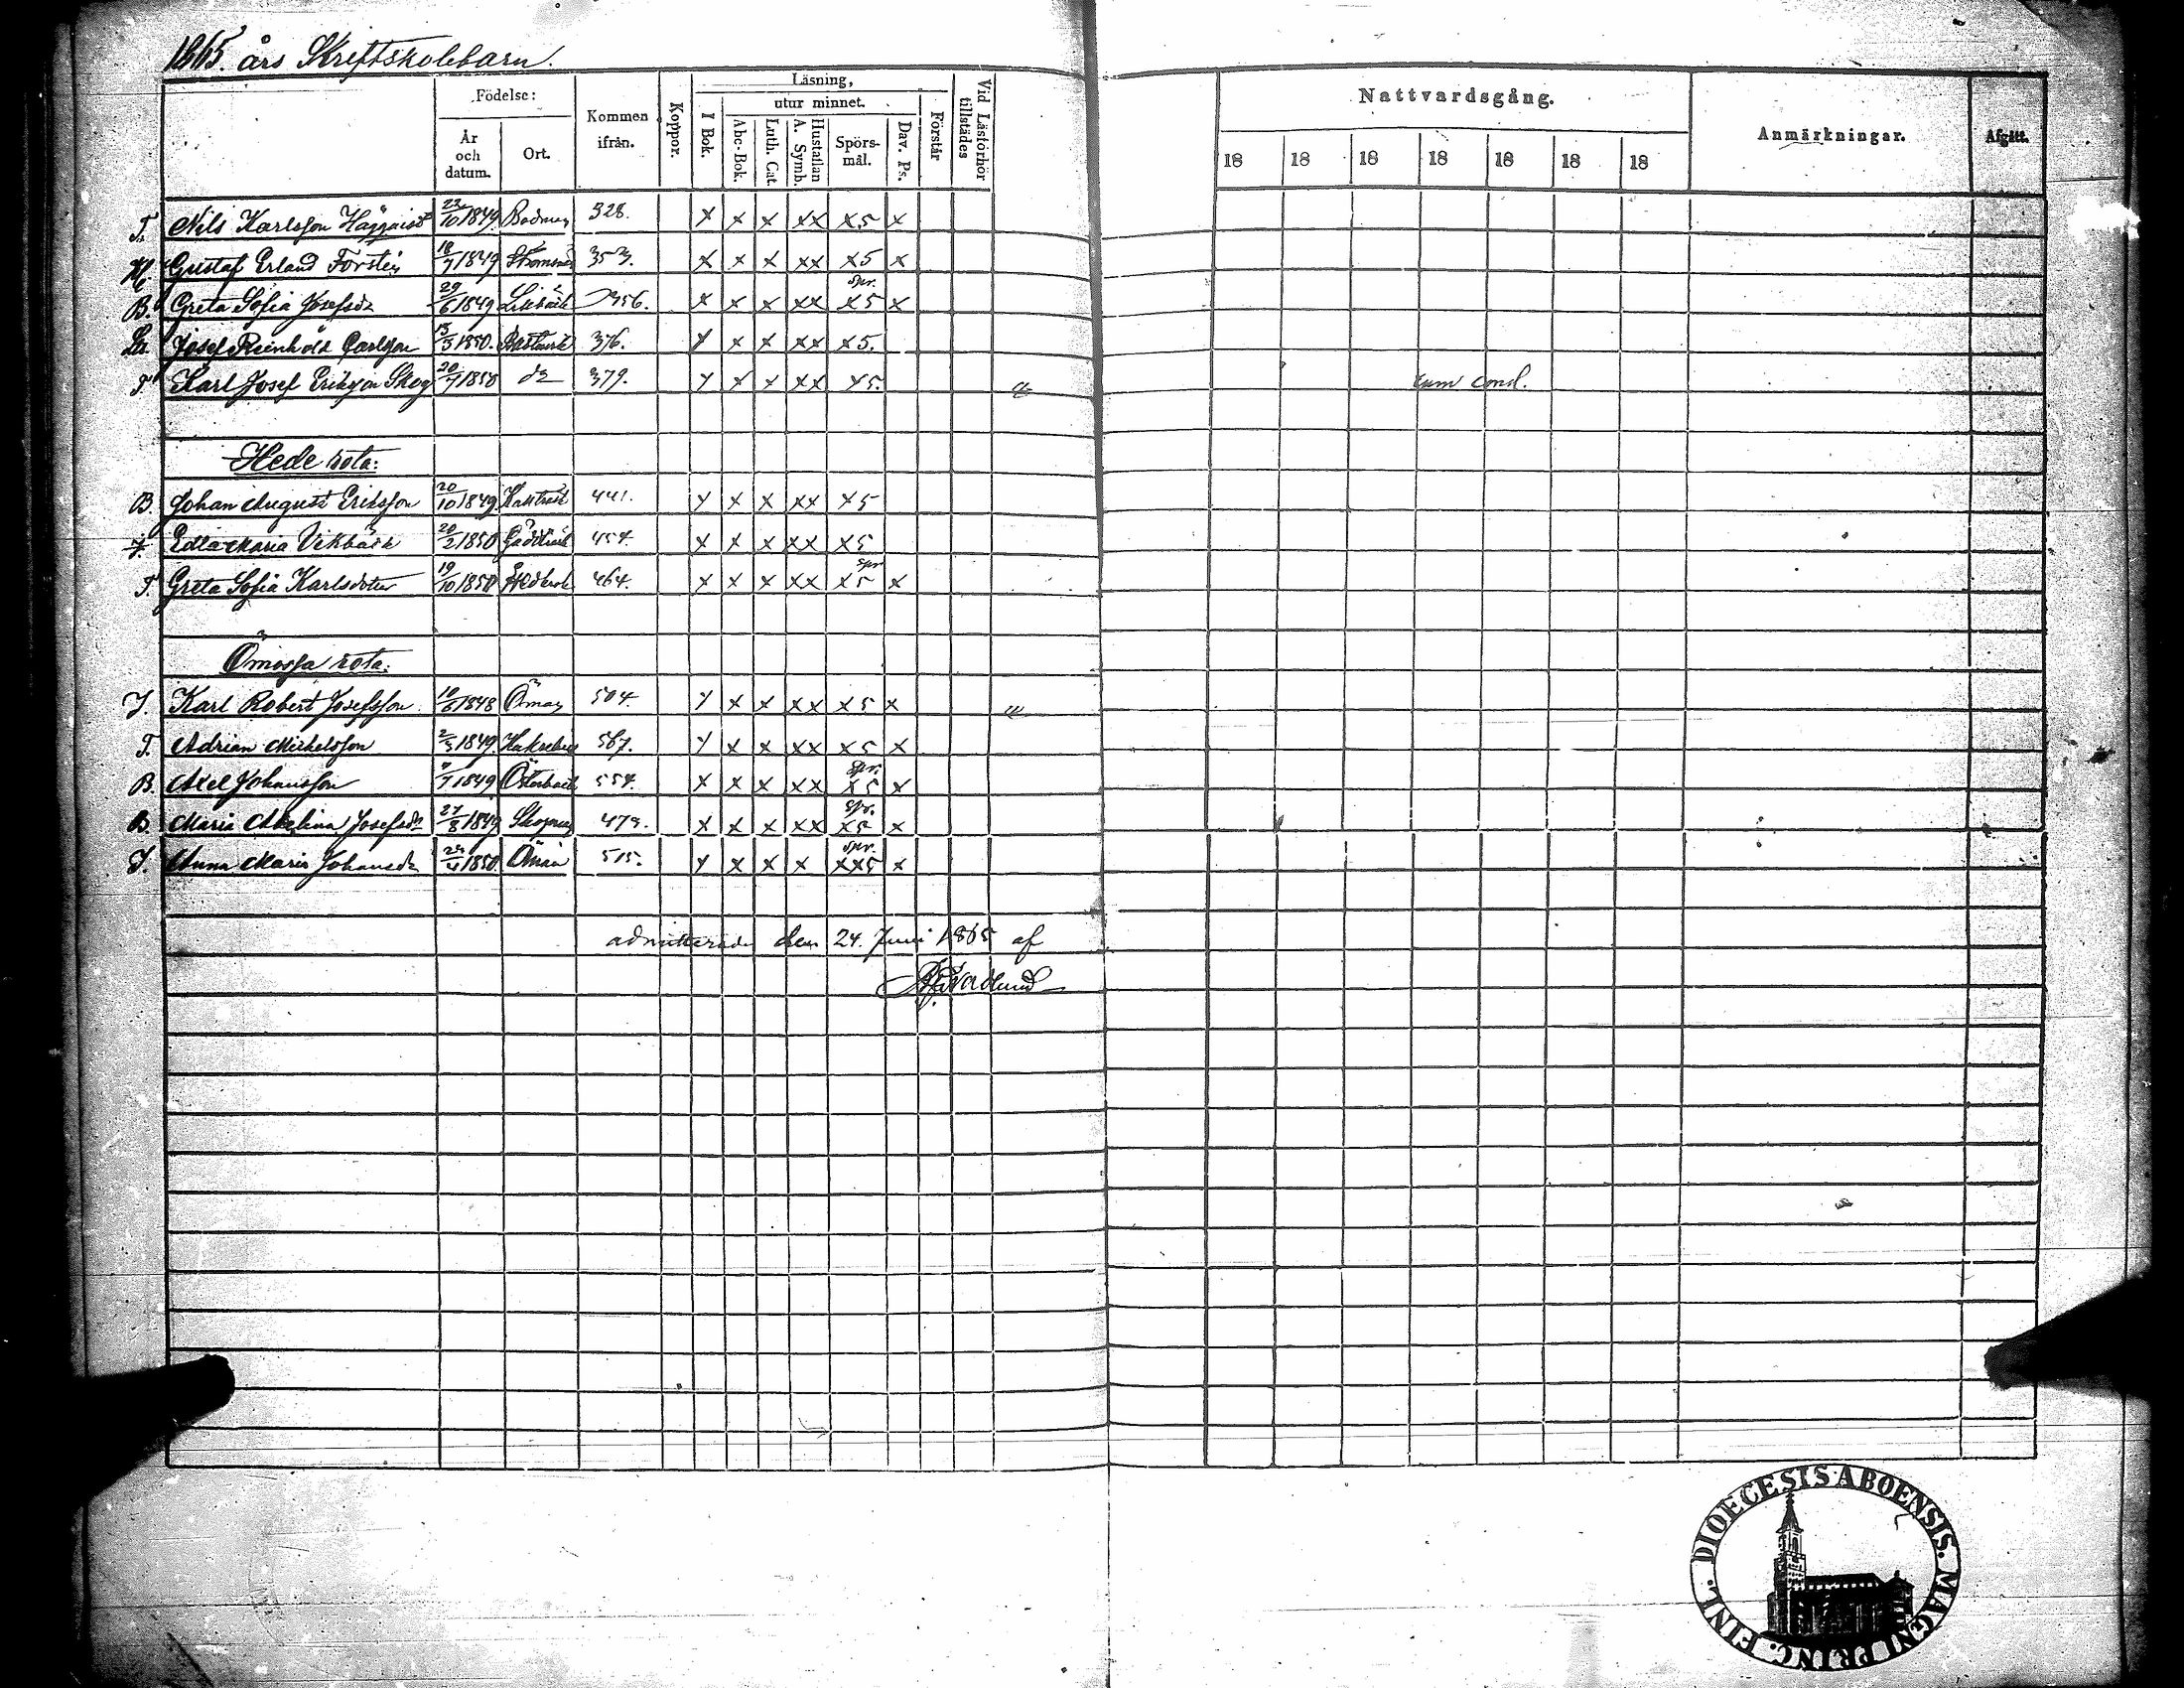 1865. års Skriftskolebarn.
Födelse: Kommen ifrån. Koppor. Läsning, Vid Läsförhör tillstädes Nattvardsgång. Anmärkningar. Afgått.
År och datum. Ort. I Bok. utur minnet. Förstår
Abc-Bok. Luth. Cat. Hustaflan A. Symb. Spörsmål. Dav. Ps. 18 18 18 18 18 18 18
T. Nils Karlsson Häggqvist 23/10 1849 328. x x x xx x5 x
Gustaf Erland Forstén 18/7 1849 353. x x x xx x5 x
B. Greta Sofia Josefsdr 29/6 1849 356. x x x xx spr. x5 x
Josef Reinhold Carlsson 13/3 1850. 376. x x x xx x5.
T Karl Josef Eriksson Skog 20/7 1850 do 379. x x x xx x5. cum cond.
Hede rota:
B. Johan August Eriksson 20/10 1849 441. x x x xx x5
Edla Maria Vikbäck 20/2 1850 454. x x x xx x5
T Greta Sofia Karlsdotter 19/10 1850 464. x x x xx spr x5 x
Ömossa rota:
J. Karl Robert Josefsson 10/6 1848 504. x x x xx x5 x
T. Adrian Michelsson 2/3 1849. 567. x x x xx x5 x
B. Axel Johansson 1849 Österback 554. x x x xx Spr. x5 x
B. Maria Josefsdr 27/8 1849 479. x x x xx spr. x5 x
J. Anna Maria Johansdr 1850. 515. x x x x spr. xx5 x
admitterade den 24. Juni 1865 af
Nordlund
DIOECESIS ABOENSIS. MAGNI PRINC. FINL.